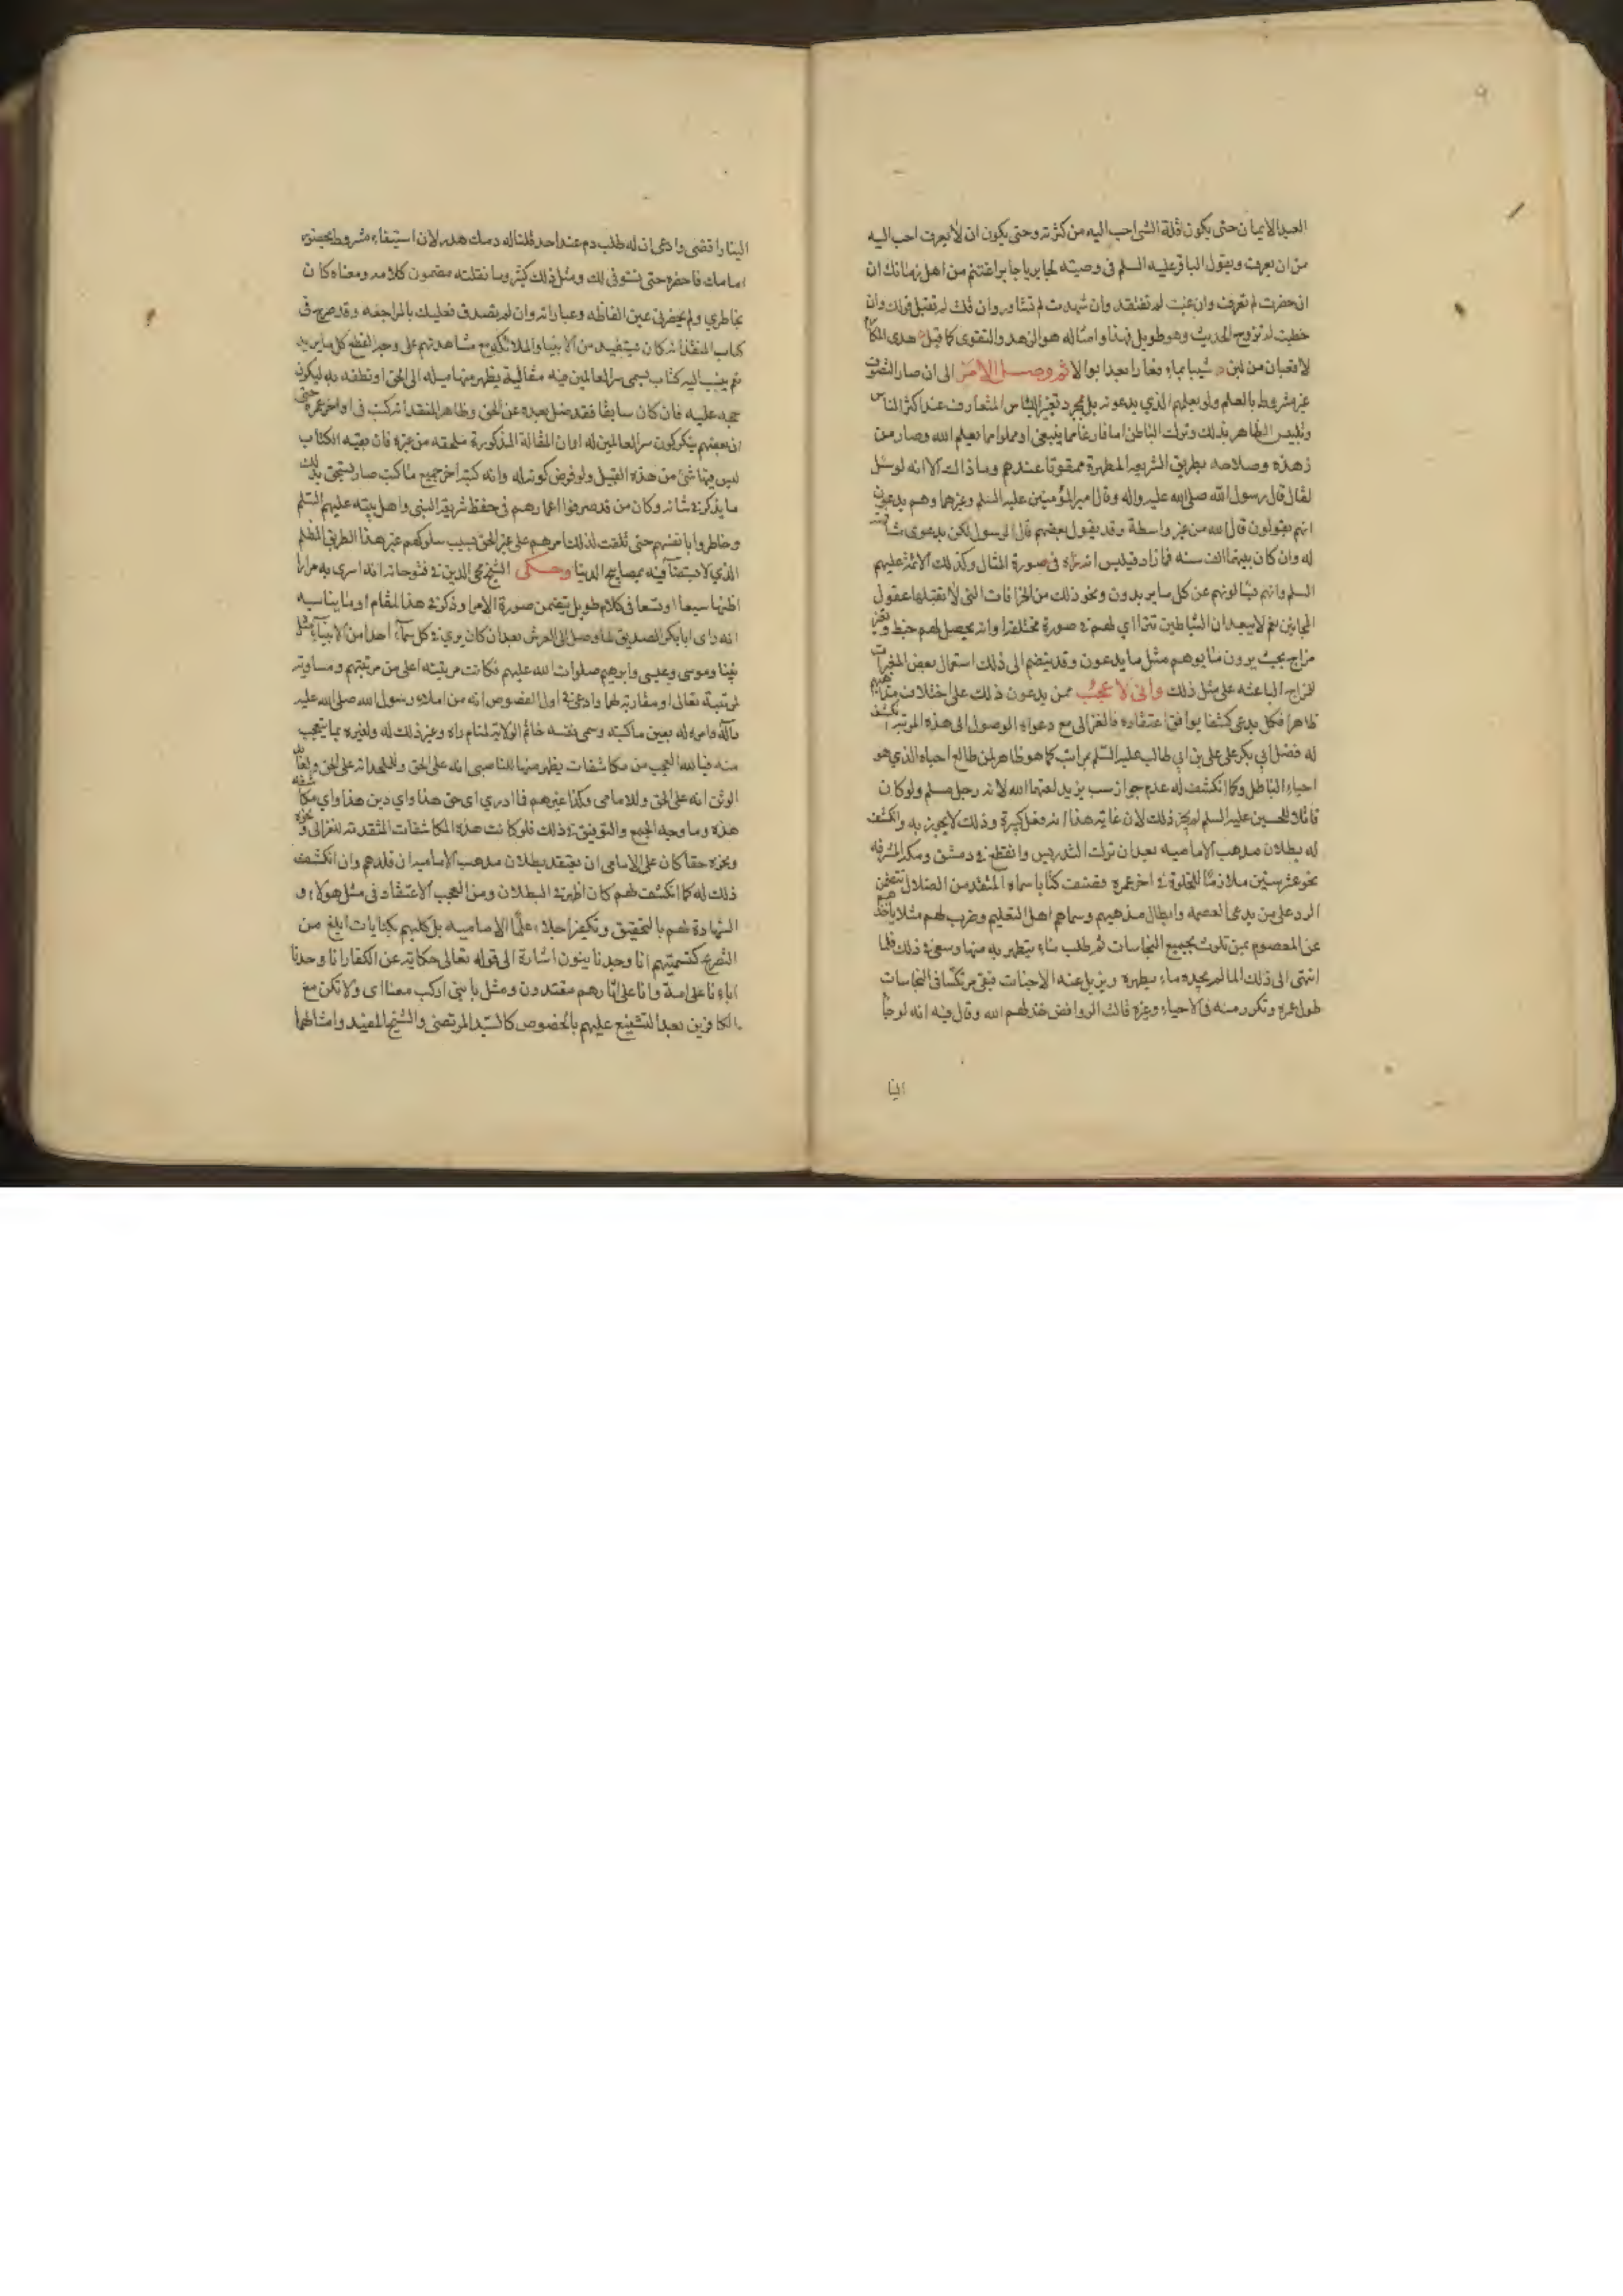 العبد الايمان حتى يكون قلة الشئ احب اليه من كثرته وحتى يكون ان لا يعرف احب اليه
من ان يعرف وبقول الباقر عليه السلم في وصيته لجابر يا جابر اغتنم من اهل زمانك ان
ان حضرت لم تعرف وان غبت لم تفتقد وان شهدت لم تشاور وان قلت لم تقبل قولك وان
خطبت لم تزوج الحديث وهو طويل فهذا وامثاله هو الزهد والتقوى كما قيل هدى المكارم
لا قعبان من لبن شيبا بماء فعادا بعد ابوالا ثم وصل الامر الى ان صار التصوف
غير مشروط بالعلم ولو بعلمهم الذي يدعونه بل بمجرد تغيير اللباس المتعارف عند اكثر الناس
وتلبيس الظاهر بذلك وترك الباطن اما فارغا مما ينبغي او مملوا مما يعلم الله وصار من
زهده وصلاحه بطريق الشريعة المطهرة ممقوتا عندهم وما ذاك الا انه لو سئل
لقال قال رسول الله صلى الله عليه واله وقال امير المؤمنين عليه السلم وغيرهما وهم يدعون
انهم يقولون قال الله من غير واسطة وقد يقول بعضهم قال الرسول لكن بدعوى مشافهته
له وان كان بينهما الف سنه فما زاد فيلبس انه رآه في صورة المثال وكذلك الائمة عليهم
السلم وانهم يسألونهم عن كل ما يريدون ونحو ذلك من الخرافات التي لا تقبلها عقول
المجانين نعم لا يبعد ان الشياطين تتراأى لهم في صورة مختلفة وانه يحصل لهم خبط وتغير
مزاج بحيث يرون ما يوهم مثل ما يدعون وقد ينضم الى ذلك استعمال بعض المغيرات
للمزاج الباعثة على مثل ذلك وانى لا عجب ممن يدعون ذلك على اختلاف مذاهبهم
ظاهرا فكل يدعي كشفا يوافق اعتقاده فالغزالي مع دعواه الوصول الى هذه المرتبة انكشف
له فضل ابي بكر على علي بن ابي طالب عليه السلم بمراتب كما هو ظاهر لمن طالع احياه الذي هو
احياء الباطل وكما انكشف له عدم جواز سب يزيد لعنهما الله لانه رجل مسلم ولو كان
قاتلا للحسين عليه السلم لم يجز ذلك لان غاية هذا انه فعل كبيرة وذلك لا يجوز به وانكشف
له بطلان مذهب الامامية بعد ان ترك التدريس وانقطع في دمشق ومكة المشرفه
نحو عشر سنين ملازما للخلوة في اخر عمره فصنف كتابا سماه المنقذ من الضلال تتضمن
الرد على من يدعي العصمة وابطال مذهبهم وسماهم اهل التعليم وضرب لهم مثلا باخذهم
عن المعصوم بمن تلوث بجميع النجاسات ثم طلب ماء يتطهر به منها وسعى في ذلك فلما
انتهى الى ذلك الماء لم يجده ماء يطهره ويزيل عنه الاخباث فبقي مرتكسا في النجاسات
طول عمره وتكرر منه في الاحياء وغيره قالت الروافض خذلهم الله وقال فيه انه لو جاء
الينا
الينا رافضي وادعى ان له طلب دم عند احد قلنا له دمك هدر لان استيفاءه مشروط بحضور
امامك فاحضره حتى نستوفي لك ومثل ذلك كثير وما نقلته مضمون كلامه ومعناه كان
بخاطري ولم يحضرني عين الفاظه وعباراته وان لم تصدق فعليك بالمراجعة وقد صرح في
كتاب المنقذ انه كان يستفيد من الانبياء والملائكة مع مشاهدتهم على وجه القطع كل ما يريد
نعم ينسب اليه كتاب يسمى سر العالمين فيه مقالية يظهر منها ميله الى الحق او نطقه به ليكون
حجة عليه فان كان سابقا فقد ضل بعده عن الحق وظاهر المنقذ انه كتب في اواخر عمره حتى
ان بعضهم ينكر كون سر العالمين له او ان المقالة المذكورة ملحقة من غيره فان بقية الكتاب
ليس فيها شئ من هذه القبيل ولو فرض كونه له وانه كتبه اخر جميع ما كتب صار يستحق بذلك
ما يذكر في شانه وكان من قد صرفوا اعمارهم في حفظ شريعة النبي واهل بيته عليهم السلم
وخاطروا بانفسهم حتى تلفت لذلك امرهم على غير الحق بسبب سلوكهم غير هذا الطريق المظلم
الذي لا يستضآ فيه بمصابيح الدنيا وحكى الشيخ محي الدين في فتوحاته انه اسري به مرارا
اظنها سبعا او تسعا في كلام طويل يتضمن صورة الامر وذكر في هذا المقام او ما يناسبه
انه راى ابا بكر الصديق لما وصل الى العرش بعد ان كان يرى في كل سمآء احدا من الانبيآء مثل
نبينا وموسى وعيسى وابرهيم صلوات الله عليهم فكانت مرتبته اعلى من مرتبتهم ومساويه
لمرتبة تعالى او مقاربه لها وادعى في اول الفصوص انه من املاء رسول الله صلى الله عليه
وآله وامره له بعين ما كتبه وسمى نفسه خاتم الولاية لمنام رآه وغير ذلك له ولغيره مما يتعجب
منه فيا لله العجب من مكاشفات يظهر منها للناصبي انه على الحق وللملحد انه على الحق ولعابد
الوثن انه على الحق وللامامي وكذا غيرهم فما ادري اي حق هذا واي دين هذا واي مكاشفة
هذه وما وجه الجمع والتوفيق في ذلك فلو كانت هذه المكاشفات المتقدمة للغزالي وغيره
ونحوه حقا كان على الامامي ان يعتقد بطلان مذهب الامامية ان قلدهم وان انكشف
ذلك له كما انكشف لهم كان اظهر في البطلان ومن العجب الاعتقاد في مثل هولاء و
الشهادة لهم بالتحقيق وتكفير اجلاء علمآ الامامية بل كلهم بكنايات ابلغ من
التصريح كتسميتهم انا وجدنا بينون اشارة الى قوله تعالى حكاية عن الكفار انا وجدنا
اباءنا على امة وانا على اثارهم مقتدون ومثل يا بني اركب معنا اي ولا تكن مع
الكافرين بعد التشنيع عليهم بالخصوص كالسيد المرتضى والشيخ المفيد وامثالهما